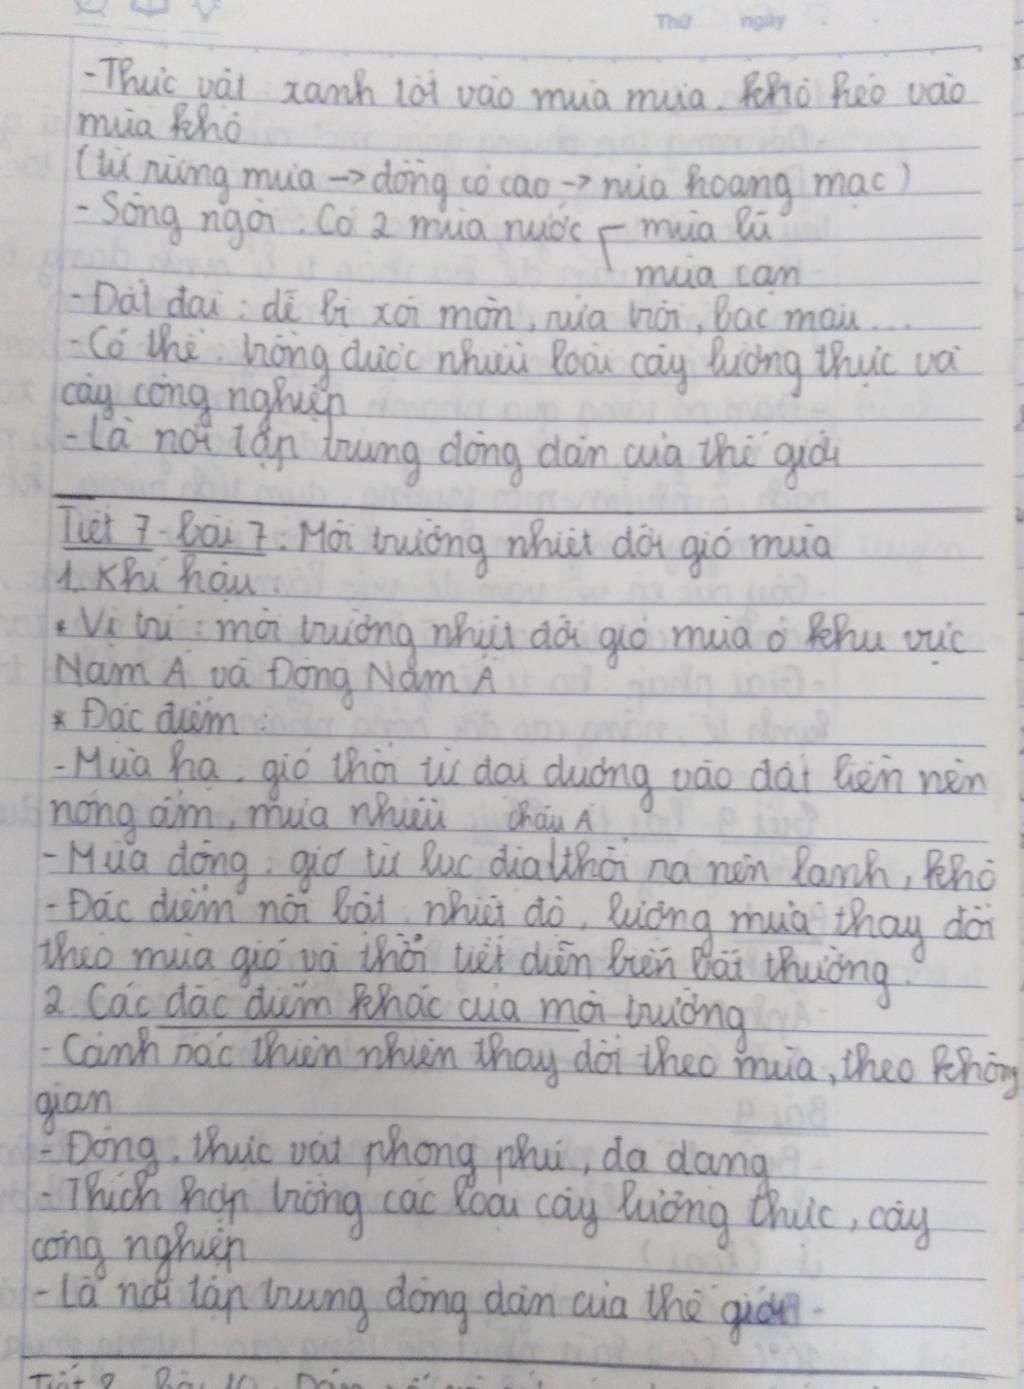 Thứ ngày
- Thực vật xanh tốt vào mùa mưa. khô héo vào
mùa khô
(từ rừng mưa → đồng cỏ cao → nửa hoang mạc)
- Sông ngòi: Có 2 mùa nước mùa lũ
mùa cạn
- Đất đai: dễ bị xói mòn, rửa trôi, bạc màu...
- Có thể trồng được nhiều loài cây lương thực và
cây công nghiệp
- Là nơi tập trung đông dân của thế giới
Tiết 7 - Bài 7: Môi trường nhiệt đới gió mùa
1. Khí hậu:
* Vị trí: môi trường nhiệt đới gió mùa ở khu vực
Nam Á và Đông Nam Á
* Đặc điểm:
- Mùa hạ: gió thổi từ đại dương vào đất liền nên
nóng ẩm, mưa nhiều châu Á
- Mùa đông: gió từ lục địa thổi ra nên lạnh, khô
- Đặc điểm nổi bật: nhiệt độ, lượng mưa thay đổi
theo mùa gió và thời tiết diễn biến bất thường.
2. Các đặc điểm khác của môi trường
- Cảnh sắc thiên nhiên thay đổi theo mùa, theo không
gian
- Động, thực vật phong phú, đa dạng
- Thích hợp trồng các loại cây lương thực, cây
công nghiệp
- Là nơi tập trung đông dân của thế giới.